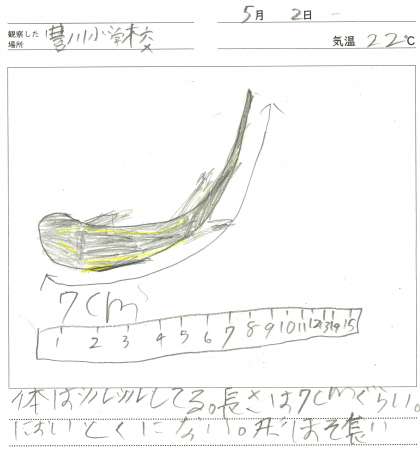 5月 2日
観察した場所 豊川小学校
気温 22℃
7cm
1 2 3 4 5 6 7 8 9 10 11 12 13 14 15
体はツルツルしてる。長さは7cmぐらい。
においとくにない。形はそ長い